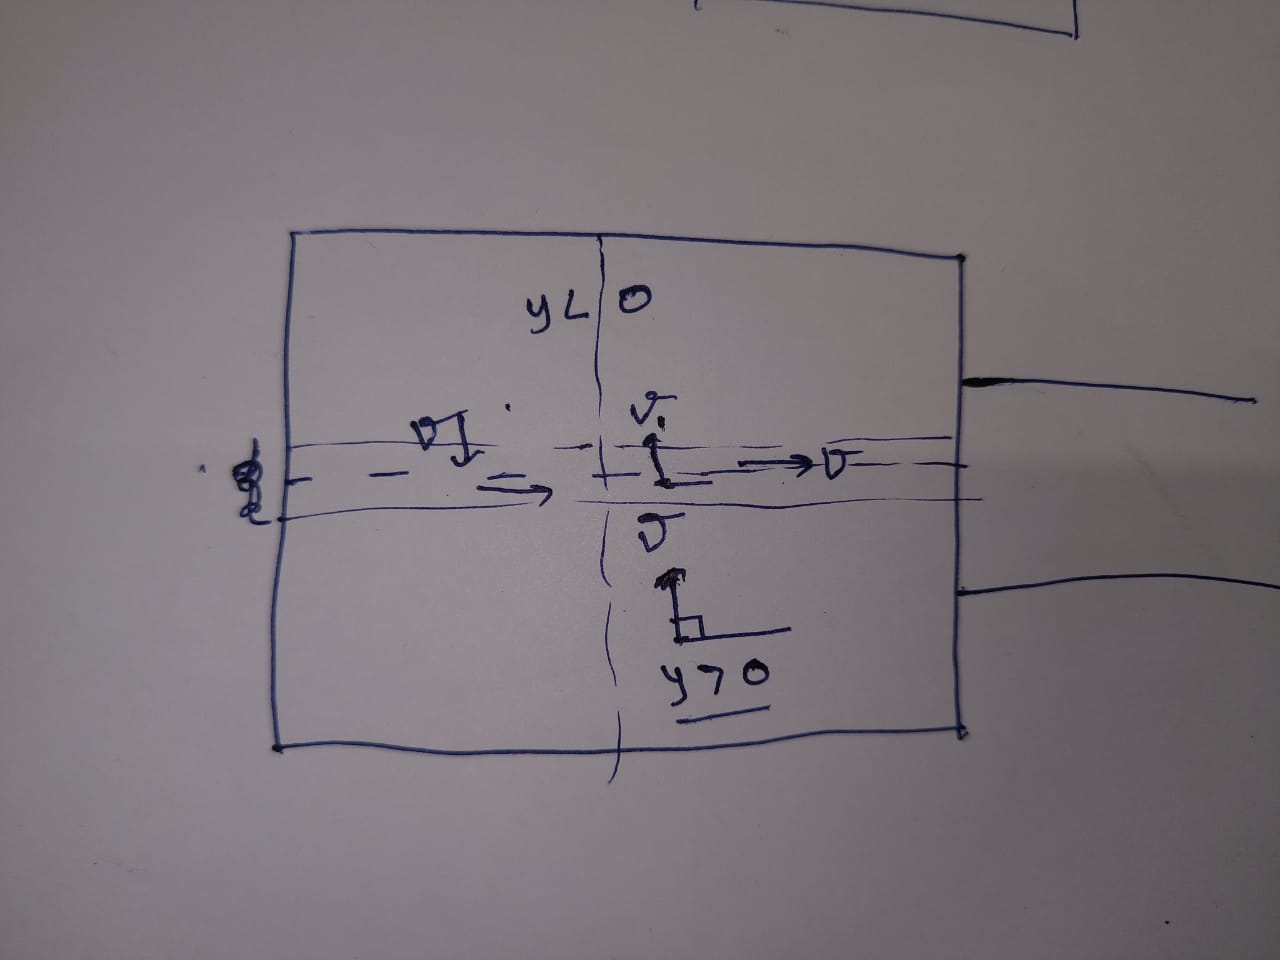 y < 0
v
v
v
v
y > 0